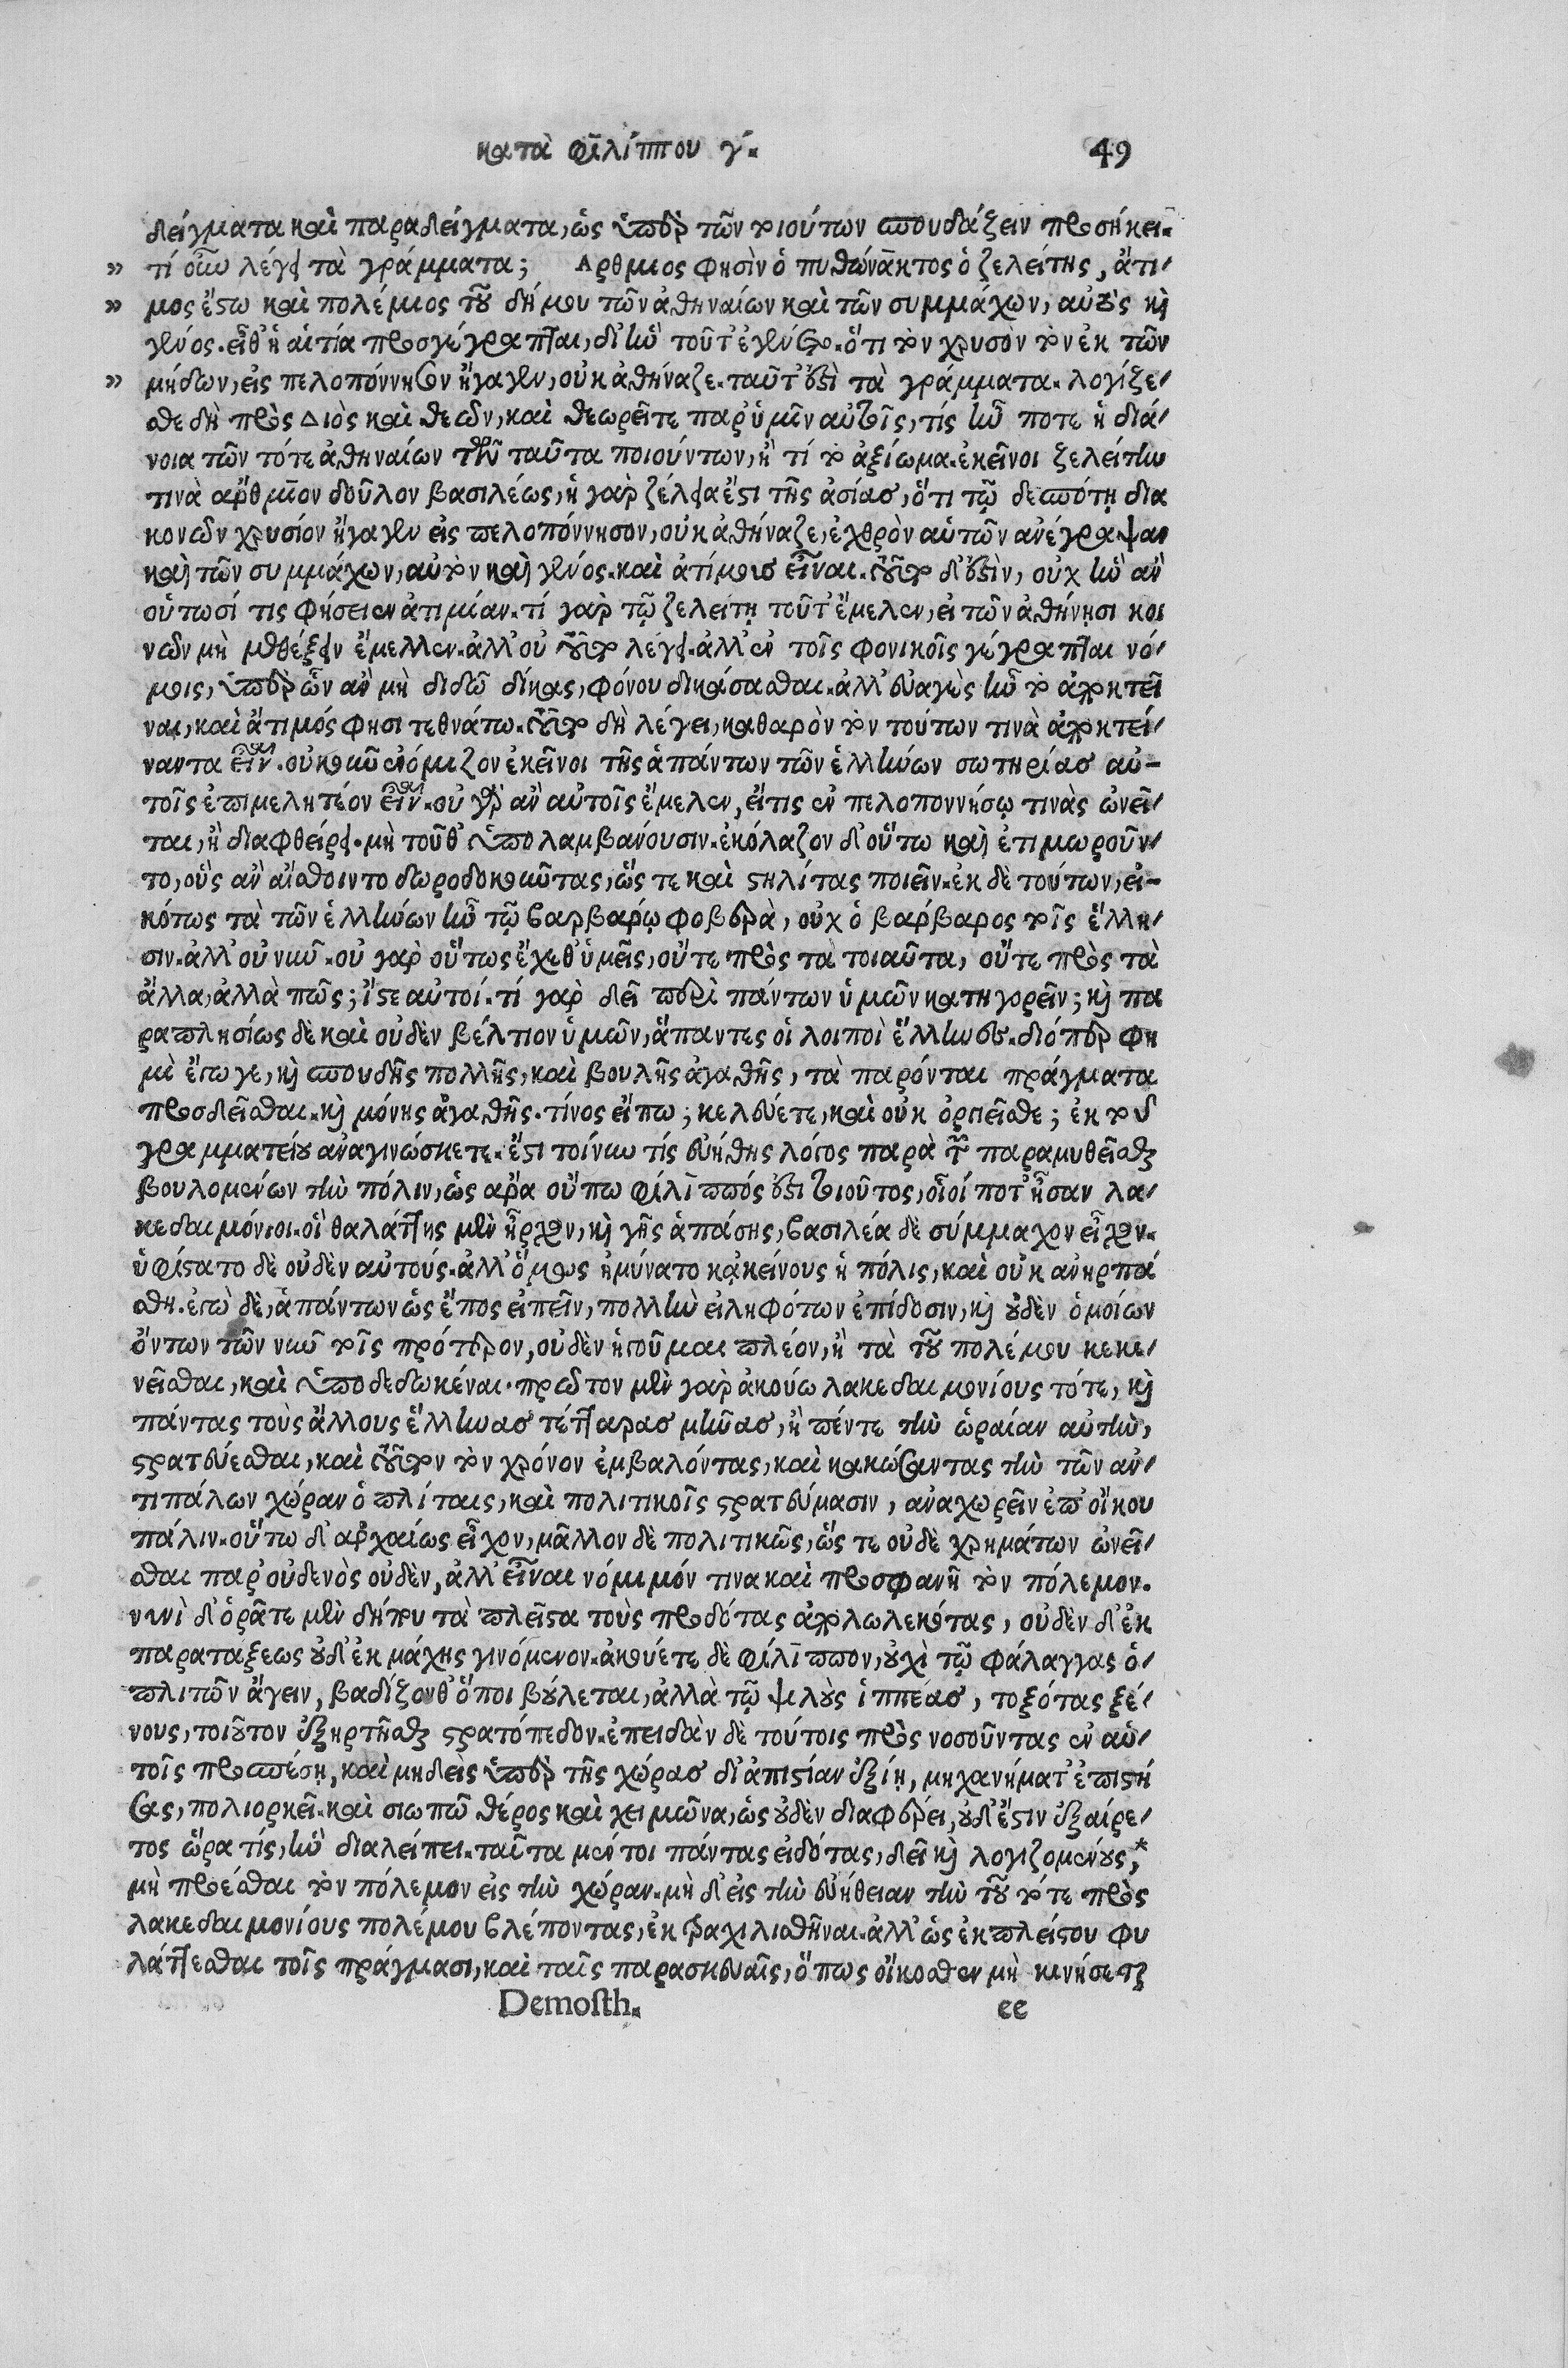 κατὰ φιλίππου γ΄. 49
δείγματα καὶ παραδείγματα, ὡς ὑπὲρ τῶν τοιούτων σπουδάζειν προσήκει.
» τί οὖν λέγει τὰ γράμματα; Αρθμιος φησὶν ὁ πυθώνακτος ὁ ζελείτης, ἄτι/
» μος ἔστω καὶ πολέμιος τοῦ δήμου τῶν ἀθηναίων καὶ τῶν συμμάχων, αὐτὸς καὶ
γένος. εἶθ' ἡ αἰτία προσγέγραπται, δι' ἣν τοῦτ' ἐγένετο. ὅτι τὸν χρυσὸν τὸν ἐκ τῶν
» μήδων, εἰς πελοπόννησον ἤγαγεν, οὐκ ἀθήναζε. ταῦτ' ἐστὶ τὰ γράμματα. λογίζε/
σθε δὴ πρὸς Διὸς καὶ θεῶν, καὶ θεωρεῖτε παρ' ὑμῖν αὐτοῖς, τίς ἦν ποτε ἡ διά/
νοια τῶν τότε ἀθηναίων τῶν ταῦτα ποιούντων, ἢ τί τὸ ἀξίωμα. ἐκεῖνοι ζελείτην
τινὰ ἄρθμιον δοῦλον βασιλέως, ἡ γὰρ ζέλειά ἐστι τῆς ἀσίας, ὅτι τῷ δεσπότῃ δια
κονῶν χρυσίον ἤγαγεν εἰς πελοπόννησον, οὐκ ἀθήναζε, ἐχθρὸν αὑτῶν ἀνέγραψαν
καὶ τῶν συμμάχων, αὐτὸν καὶ γένος. καὶ ἀτίμους εἶναι. τοῦτο δ' ἐστὶν, οὐχ ἣν ἂν
οὑτωσί τις φήσειεν ἀτιμίαν. τί γὰρ τῷ ζελείτῃ τοῦτ' ἔμελεν, εἰ τῶν ἀθήνησι κοι
νῶν μὴ μεθέξειν ἔμελλεν. ἀλλ' οὐ τοῦτο λέγει. ἀλλ' ἐν τοῖς φονικοῖς γέγραπται νό/
μοις, ὑπὲρ ὧν ἂν μὴ διδῶ δίκας, φόνου δικάσασθαι. ἀλλ' εὐαγὲς ἦν τὸ ἀποκτεῖ
ναι, καὶ ἄτιμός φησι τεθνάτω. τοῦτο δὴ λέγει, καθαρὸν τὸν τούτων τινὰ ἀποκτεί/
ναντα εἶναι. οὐκοῦν ἐνόμιζον ἐκεῖνοι τῆς ἁπάντων τῶν ἑλλήνων σωτηρίας αὐ-
τοῖς ἐπιμελητέον εἶναι. οὐ γὰρ ἂν αὐτοῖς ἔμελεν, εἴ τις ἐν πελοποννήσῳ τινὰς ὠνεῖ/
ται, ἢ διαφθείρει. μὴ τοῦθ' ὑπολαμβάνουσιν. ἐκόλαζον δ' οὕτω καὶ ἐτιμωροῦν/
το, οὓς ἂν αἴσθοιντο δωροδοκοῦντας, ὥς τε καὶ στηλίτας ποιεῖν. ἐκ δὲ τούτων, εἰ-
κότως τὰ τῶν ἑλλήνων ἦν τῷ βαρβάρῳ φοβερὰ, οὐχ ὁ βάρβαρος τοῖς ἕλλη/
σιν. ἀλλ' οὐ νῦν. οὐ γὰρ οὕτως ἔχεθ' ὑμεῖς, οὔτε πρὸς τὰ τοιαῦτα, οὔτε πρὸς τὰ
ἄλλα, ἀλλὰ πῶς; ἴστε αὐτοί. τί γὰρ δεῖ περὶ πάντων ὑμῶν κατηγορεῖν; καὶ πα
ραπλησίως δὲ καὶ οὐδὲν βέλτιον ὑμῶν, ἅπαντες οἱ λοιποὶ ἕλληνες. διόπερ φη
μὶ ἔγωγε, καὶ σπουδῆς πολλῆς, καὶ βουλῆς ἀγαθῆς, τὰ παρόνται πράγματα
προσδεῖσθαι. καὶ μόνης ἀγαθῆς. τίνος εἴπω; κελεύετε, καὶ οὐκ ὀργιεῖσθε; ἐκ τοῦ
γραμματείου ἀναγινώσκετε. ἔστι τοίνυν τίς εὐήθης λόγος παρὰ τῶν παραμυθεῖσθαι
βουλομένων τὴν πόλιν, ὡς ἄρα οὔπω φίλιππός ἐστι τοιοῦτος, οἷοί ποτ' ἦσαν λα/
κεδαιμόνιοι. οἳ θαλάττης μὲν ἦρχον, καὶ γῆς ἁπάσης, βασιλέα δὲ σύμμαχον εἶχον.
ὑφίστατο δὲ οὐδὲν αὐτούς. ἀλλ' ὅμως ἠμύνατο κἀκείνους ἡ πόλις, καὶ οὐκ ἀνηρπά
σθη. ἐγὼ δὲ, ἁπάντων ὡς ἔπος εἰπεῖν, πολλὴν εἰληφότων ἐπίδοσιν, καὶ οὐδὲν ὁμοίων
ὄντων τῶν νῦν τοῖς πρότερον, οὐδὲν ἡγοῦμαι πλέον, ἢ τὰ τοῦ πολέμου κεκι/
νεῖσθαι, καὶ ὑποδεδωκέναι. πρῶτον μὲν γὰρ ἀκούω λακεδαιμονίους τότε, καὶ
πάντας τοὺς ἄλλους ἕλληνας τέτταρας μῆνας, ἢ πέντε τὴν ὡραίαν αὐτὴν,
στρατεύεσθαι, καὶ τοῦτον τὸν χρόνον ἐμβαλόντας, καὶ κακώσαντας τὴν τῶν ἀν/
τιπάλων χώραν ὁπλίταις, καὶ πολιτικοῖς στρατεύμασιν, ἀναχωρεῖν ἐπ' οἴκου
πάλιν. οὕτω δ' ἀρχαίως εἶχον, μᾶλλον δὲ πολιτικῶς, ὥς τε οὐδὲ χρημάτων ὠνεῖ/
σθαι παρ' οὐδενὸς οὐδὲν, ἀλλ' εἶναι νόμιμόν τινα καὶ προσφανῆ τὸν πόλεμον.
νυνὶ δ' ὁρᾶτε μὲν δήπου τὰ πλεῖστα τοὺς προδότας ἀπολωλεκότας, οὐδὲν δ' ἐκ
παρατάξεως οὐδ' ἐκ μάχης γινόμενον. ἀκούετε δὲ φίλιππον, οὐχὶ τῷ φάλαγγας ὁ/
πλιτῶν ἄγειν, βαδίζονθ' ὅποι βούλεται, ἀλλὰ τῷ ψιλοὺς ἱππέας, τοξότας ξέ/
νους, τοιοῦτον ἐξηρτῆσθαι στρατόπεδον. ἐπειδὰν δὲ τούτοις πρὸς νοσοῦντας ἐν αὑ/
τοῖς προσπέσῃ, καὶ μηδεὶς ὑπὲρ τῆς χώρας δι' ἀπιστίαν ἐξίῃ, μηχανήματ' ἐπιστή
σας, πολιορκεῖ. καὶ σιωπῶ θέρος καὶ χειμῶνα, ὡς οὐδὲν διαφέρει, οὐδ' ἔστιν ἐξαίρε/
τος ὥρα τίς, ἣν διαλείπει. ταῦτα μέντοι πάντας εἰδότας, δεῖ καὶ λογιζομένους,*
μὴ προέσθαι τὸν πόλεμον εἰς τὴν χώραν. μὴ δ' εἰς τὴν εὐήθειαν τὴν τοῦ τότε πρὸς
λακεδαιμονίους πολέμου βλέποντας, ἐκτραχηλισθῆναι. ἀλλ' ὡς ἐκ πλείστου φυ
λάττεσθαι τοῖς πράγμασι, καὶ ταῖς παρασκευαῖς, ὅπως οἴκοθεν μὴ κινήσεται
Demosth. ee